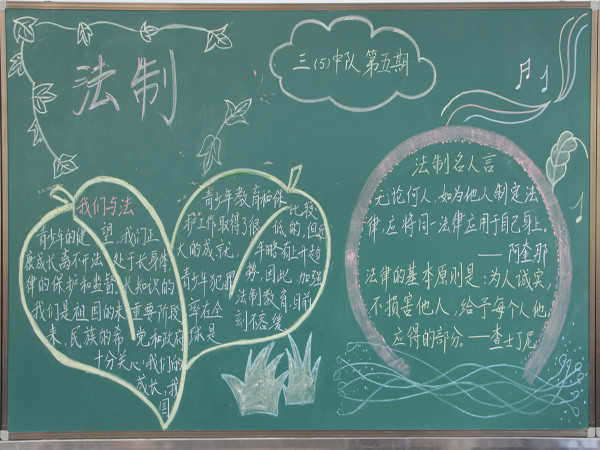 法制
三(5)中队 第五期
我们与法
青少年的健
康成长离不开法
律的保护和监督
我们是祖国的未
来,民族的希
望,我们正
处于长身体
长知识的
重要阶段
党和政府
十分关心我们的
成长,我
国
青少年教育和保
护工作取得了很
大的成就,
青少年犯罪
率在全
球是
比较
低的,但近
年略有上升趋
势,因此,加强
法制教育目前
刻不容缓
法制名人言
无论何人,如为他人制定法
律,应将同一法律应用于自己身上。
——阿奎那
法律的基本原则是:为人诚实,
不损害他人,给予每个人他
应得的部分。——查士丁尼